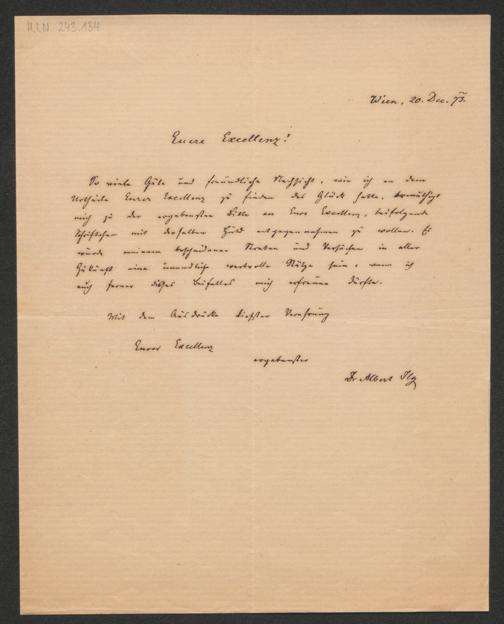 H.I.N. 243.134
Wien, 20. Dec. 73.
Euere Excellenz!
So viele Güte und freundliche Nachsicht, wie ich in dem
Urtheile Eurer Excellenz zu finden das Glück hatte, ermuthigt
mich zu der ergebensten Bitte an Eure Excellenz, beifolgende
Schriftchen mit derselben Huld entgegennehmen zu wollen. Es
würde meinem bescheidenen Streben und Versuchen in aller
Zukunft eine unendlich wertvolle Stütze sein, wenn ich
auch ferner dieses Beifalles mich erfreuen dürfte.
Mit dem Ausdrucke tiefster Verehrung
Eurer Excellenz
ergebenster
Dr Albert Ilg